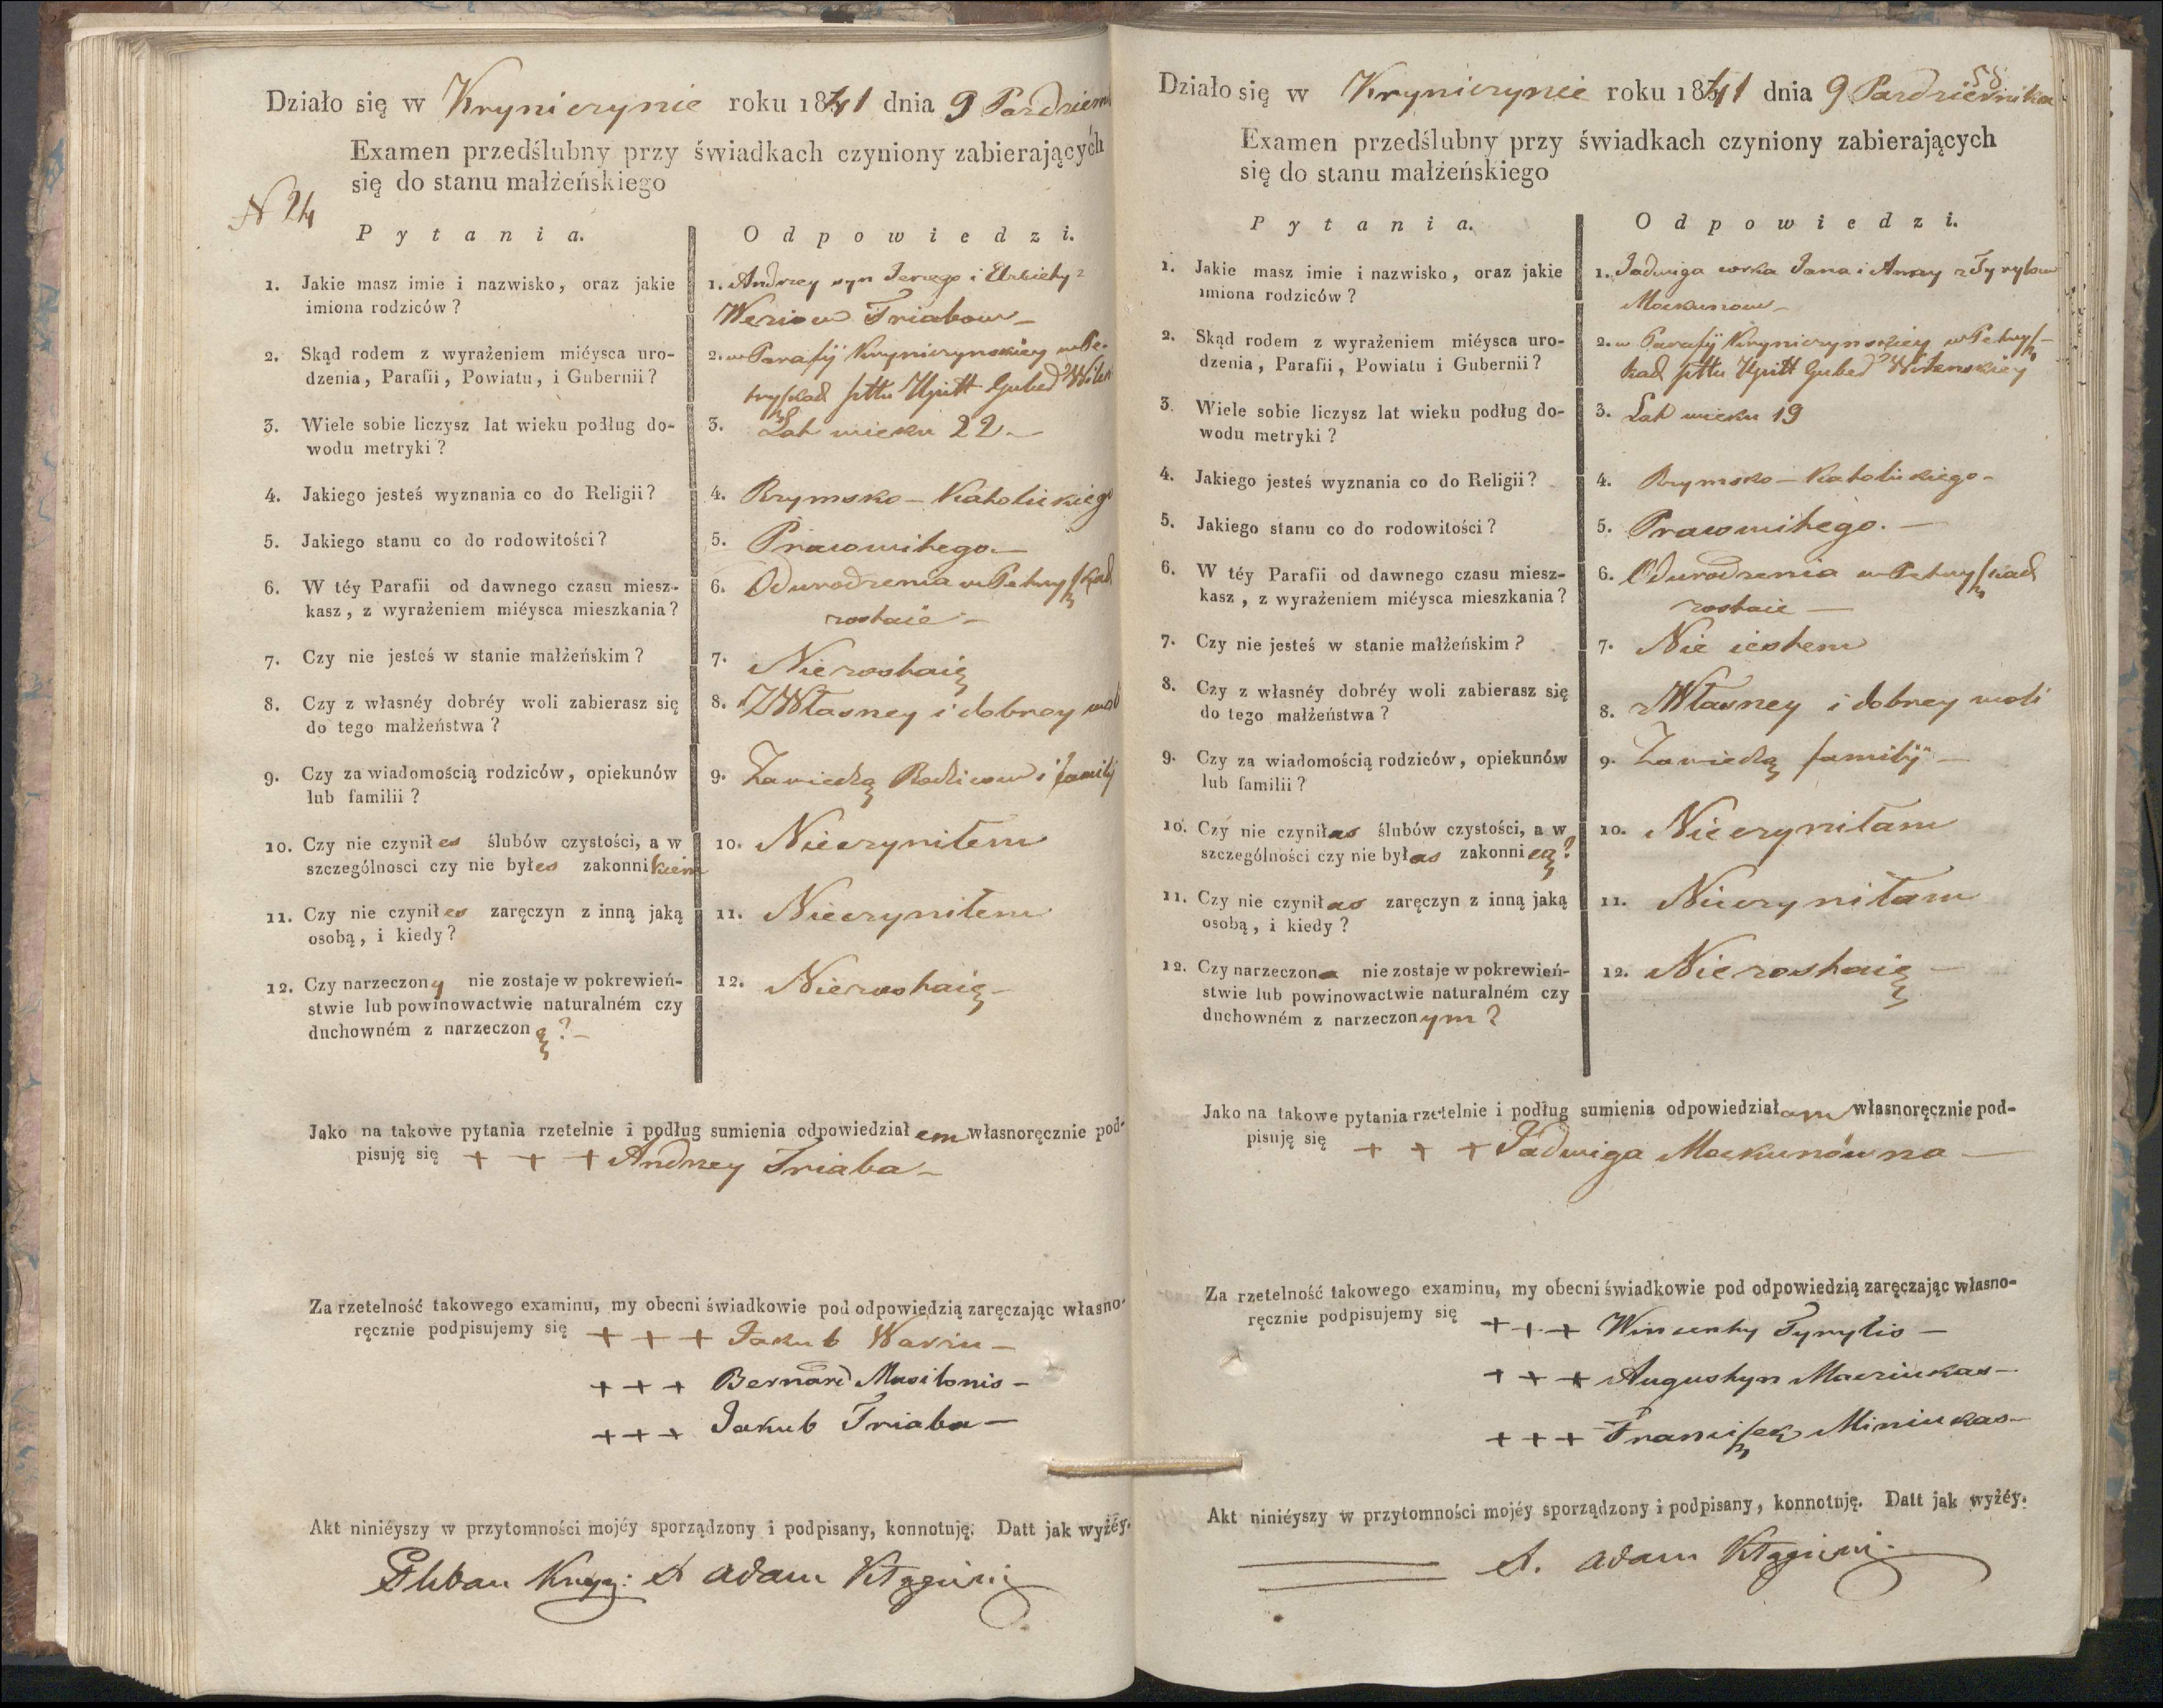 Działo się w Kryniczynie roku 1841 dnia 9 Pazdziern
Examen przedślubny przy świadkach czyniony zabierających
się do stanu małżeńskiego
N 24
Pytania.
Odpowiedzi.
1. Jakie masz imie i nazwisko, oraz jakie
imiona rodziców?
1. Andrzey syn Jerzego i Elzbiety z
Weriow Triabow
2. Skąd rodem z wyrażeniem miéysca uro-
dzenia, Parafii, Powiatu, i Gubernii?
2. w Parafij Kryniczynskiey w Pe-
tryszkach pttu Upitt Guber Wilen
3. Wiele sobie liczysz lat wieku podług do-
wodu metryki?
3. Lat wieku 22
4. Jakiego jesteś wyznania co do Religii?
4. Rzymsko-Katolickiego
5. Jakiego stanu co do rodowitości?
5. Prawowitego
6. W téy Parafii od dawnego czasu miesz-
kasz, z wyrażeniem miéysca mieszkania?
6. Od urodzenia w Petryszkach
zostaie
7. Czy nie jesteś w stanie małżeńskim?
7. Nie zostaię
8. Czy z własnéy dobréy woli zabierasz się
do tego małżeństwa?
8. Z Własney i dobrey woli
9. Czy za wiadomością rodziców, opiekunów
lub familii?
9. Za wiedzą Rodzicow i familij
10. Czy nie czyniłes ślubów czystości, a w
szczególnosci czy nie byłes zakonnikiem
10. Nie czyniłem
11. Czy nie czyniłes zaręczyn z inną jaką
osobą, i kiedy?
11. Nie czyniłem
12. Czy narzeczony nie zostaje w pokrewień-
stwie lub powinowactwie naturalném czy
duchowném z narzeczoną?
12. Nie zostaię
Jako na takowe pytania rzetelnie i podług sumienia odpowiedziałem własnoręcznie pod-
pisuję się + + + Andrzey Triaba
Za rzetelność takowego examinu, my obecni świadkowie pod odpowiedzią zaręczając własno-
ręcznie podpisujemy się + + + Jakub
+ + + Bernard
+ + + Jakub Triaba
Akt niniéyszy w przytomności mojéy sporządzony i podpisany, konnotuję. Datt jak wyżéy.
Pleban X Adam
58
Działo się w Kryniczynie roku 1841 dnia 9 Pazdziernika
Examen przedślubny przy świadkach czyniony zabierających
się do stanu małżeńskiego
Pytania.
Odpowiedzi.
1. Jakie masz imie i nazwisko, oraz jakie
imiona rodziców?
1. Jadwiga corka Jana i Anny z Tyrylow
Mockunow
2. Skąd rodem z wyrażeniem miéysca uro-
dzenia, Parafii, Powiatu i Gubernii?
2. w Parafij Kryniczynskiey w Petrysz-
kach pttu Upitt Guber Wilenskiey
3. Wiele sobie liczysz lat wieku podług do-
wodu metryki?
3. Lat wieku 19
4. Jakiego jesteś wyznania co do Religii?
4. Rzymsko-Katolickiego
5. Jakiego stanu co do rodowitości?
5. Prawowitego.
6. W téy Parafii od dawnego czasu miesz-
kasz, z wyrażeniem miéysca mieszkania?
6. Od urodzenia w Petryszkach
zostaie
7. Czy nie jesteś w stanie małżeńskim?
7. Nie iestem
8. Czy z własnéy dobréy woli zabierasz się
do tego małżeństwa?
8. z Własney i dobrey woli
9. Czy za wiadomością rodziców, opiekunów
lub familii?
9. Za wiedzą familij
10. Czy nie czyniłas ślubów czystości, a w
szczególności czy nie byłas zakonnicą?
10. Nie czyniłam
11. Czy nie czyniłas zaręczyn z inną jaką
osobą, i kiedy?
11. Nie czyniłam
12. Czy narzeczona nie zostaje w pokrewień-
stwie lub powinowactwie naturalném czy
duchowném z narzeczonym?
12. Nie zostaię
Jako na takowe pytania rzetelnie i podług sumienia odpowiedziałam własnoręcznie pod-
pisuję się + + + Jadwiga Mockunówna
Za rzetelność takowego examinu, my obecni świadkowie pod odpowiedzią zaręczając własno-
ręcznie podpisujemy się + + + Wincenty Tyrylis
+ + + Augustyn Macziukas
+ + + Franciszek Miniukas
Akt niniéyszy w przytomności mojéy sporządzony i podpisany, konnotuję. Datt jak wyżéy.
X. Adam